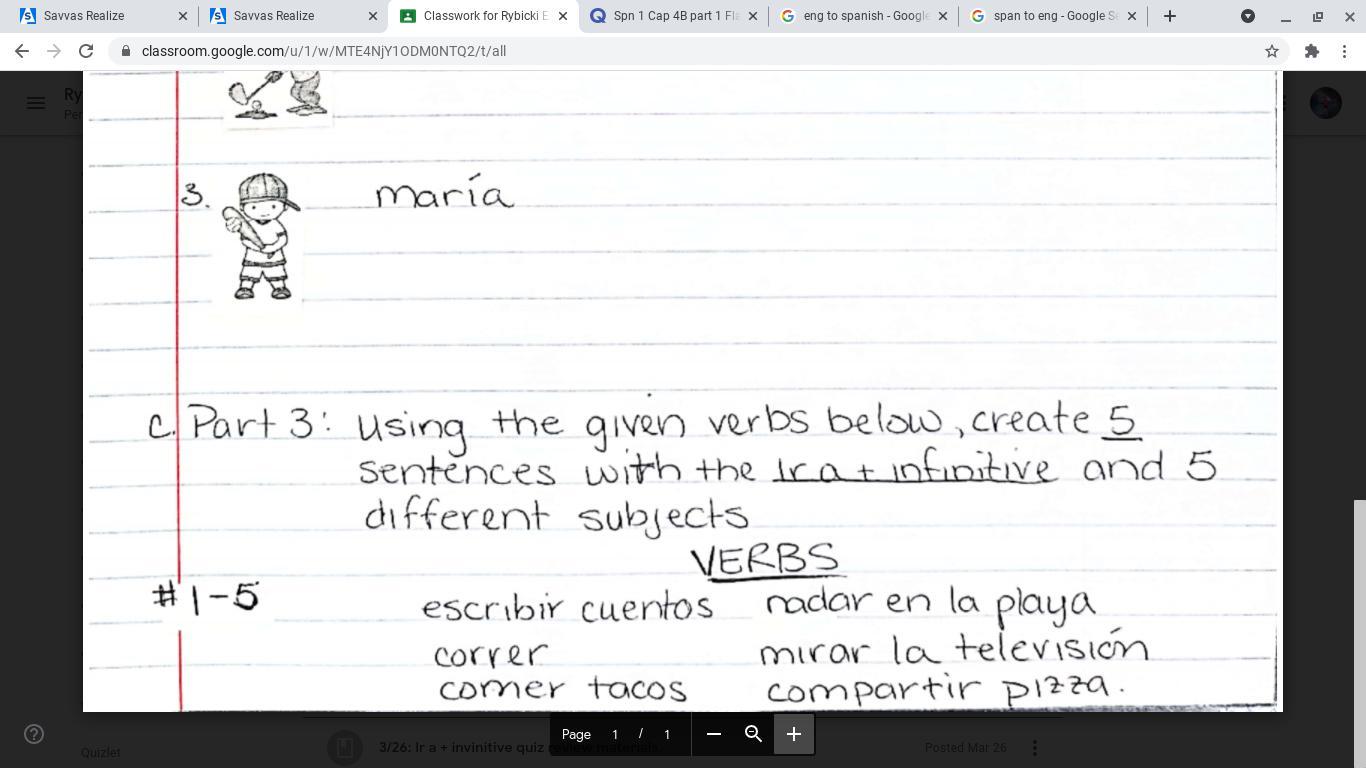 Savvas Realize
Savvas Realize
Classwork for Rybicki E
Spn 1 Cap 4B part 1 Fla
eng to spanish - Google
span to eng - Google Se
classroom.google.com/u/1/w/MTE4NjY1ODM0NTQ2/t/all
Ry
Per
3.
maría
C. Part 3: Using the given verbs below, create 5
sentences with the Ir a + infinitive and 5
different subjects
VERBS
#1-5
escribir cuentos nadar en la playa
correr mirar la televisión
comer tacos compartir pizza.
Page 1 / 1
Quizlet
3/26: Ir a + invinitive quiz review materials
Posted Mar 26